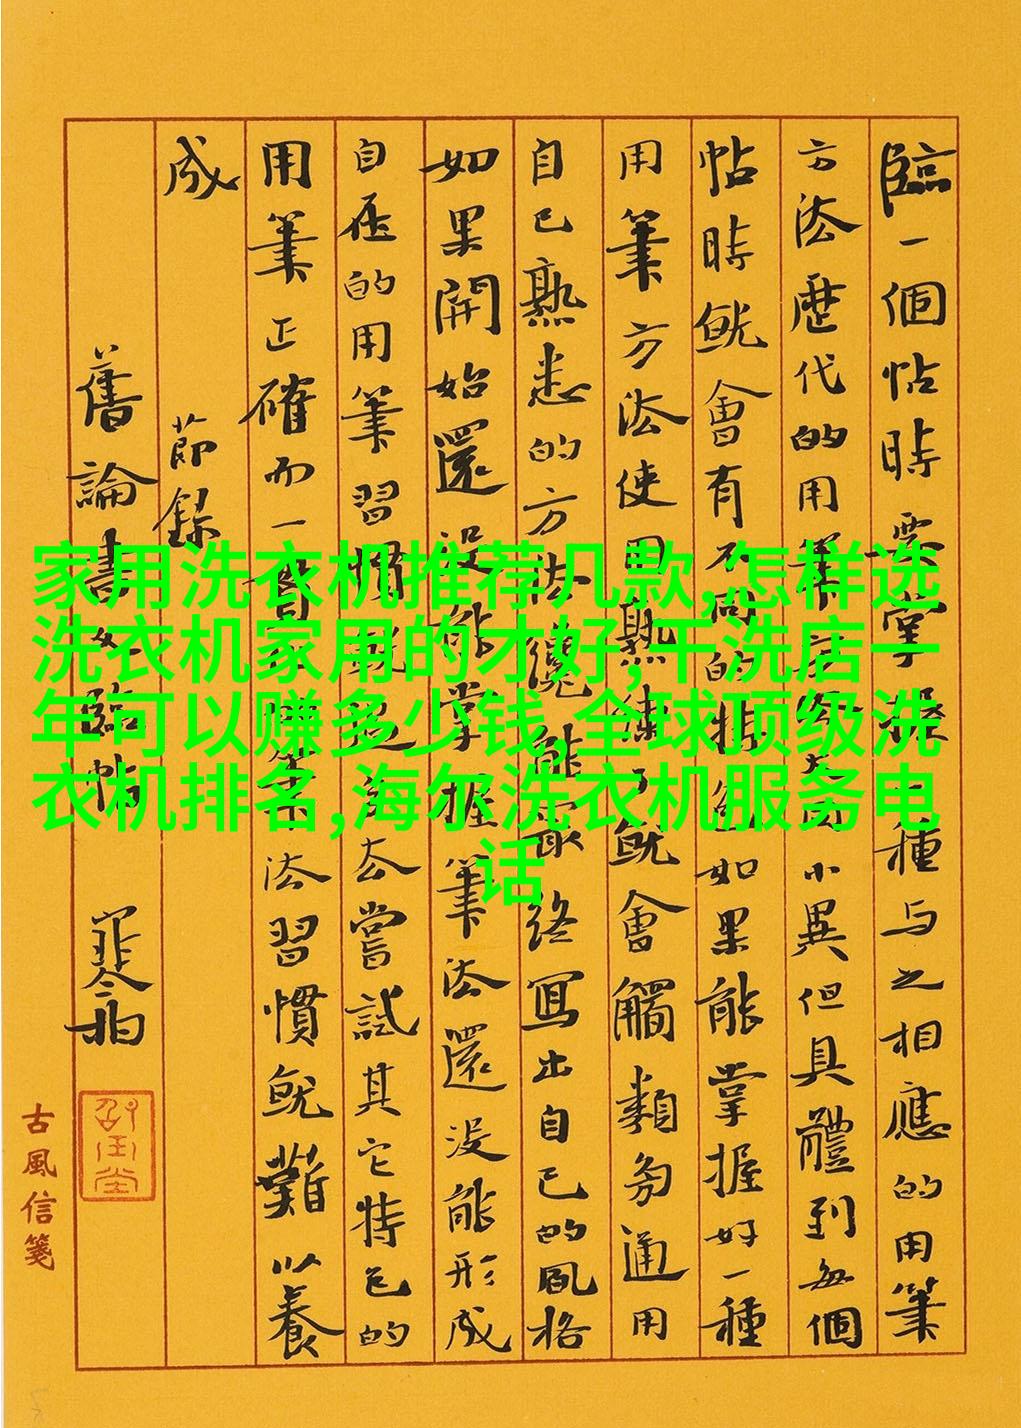 家用洗衣机推荐几款,怎样选
洗衣机家用的才好,干洗店一
年可以赚多少钱,全球顶级洗
衣机排名,海尔洗衣机服务电
话
臨一個帖時要掌握一種与之相應的用筆
方法歷代的用筆方法大同小異但具體到每個
帖時就會有不同的特色如果能掌握好一種
用筆方法使用熟練了就會觸類旁通用
自己熟悉的方法纔能最終寫出自己的風格
如果開始還沒能掌握筆法還沒能形成
自在的用筆習慣就過早去嘗試其它特色的
用筆正確而一法習慣就難以養
成 節錄
舊論書臨帖
古風信箋